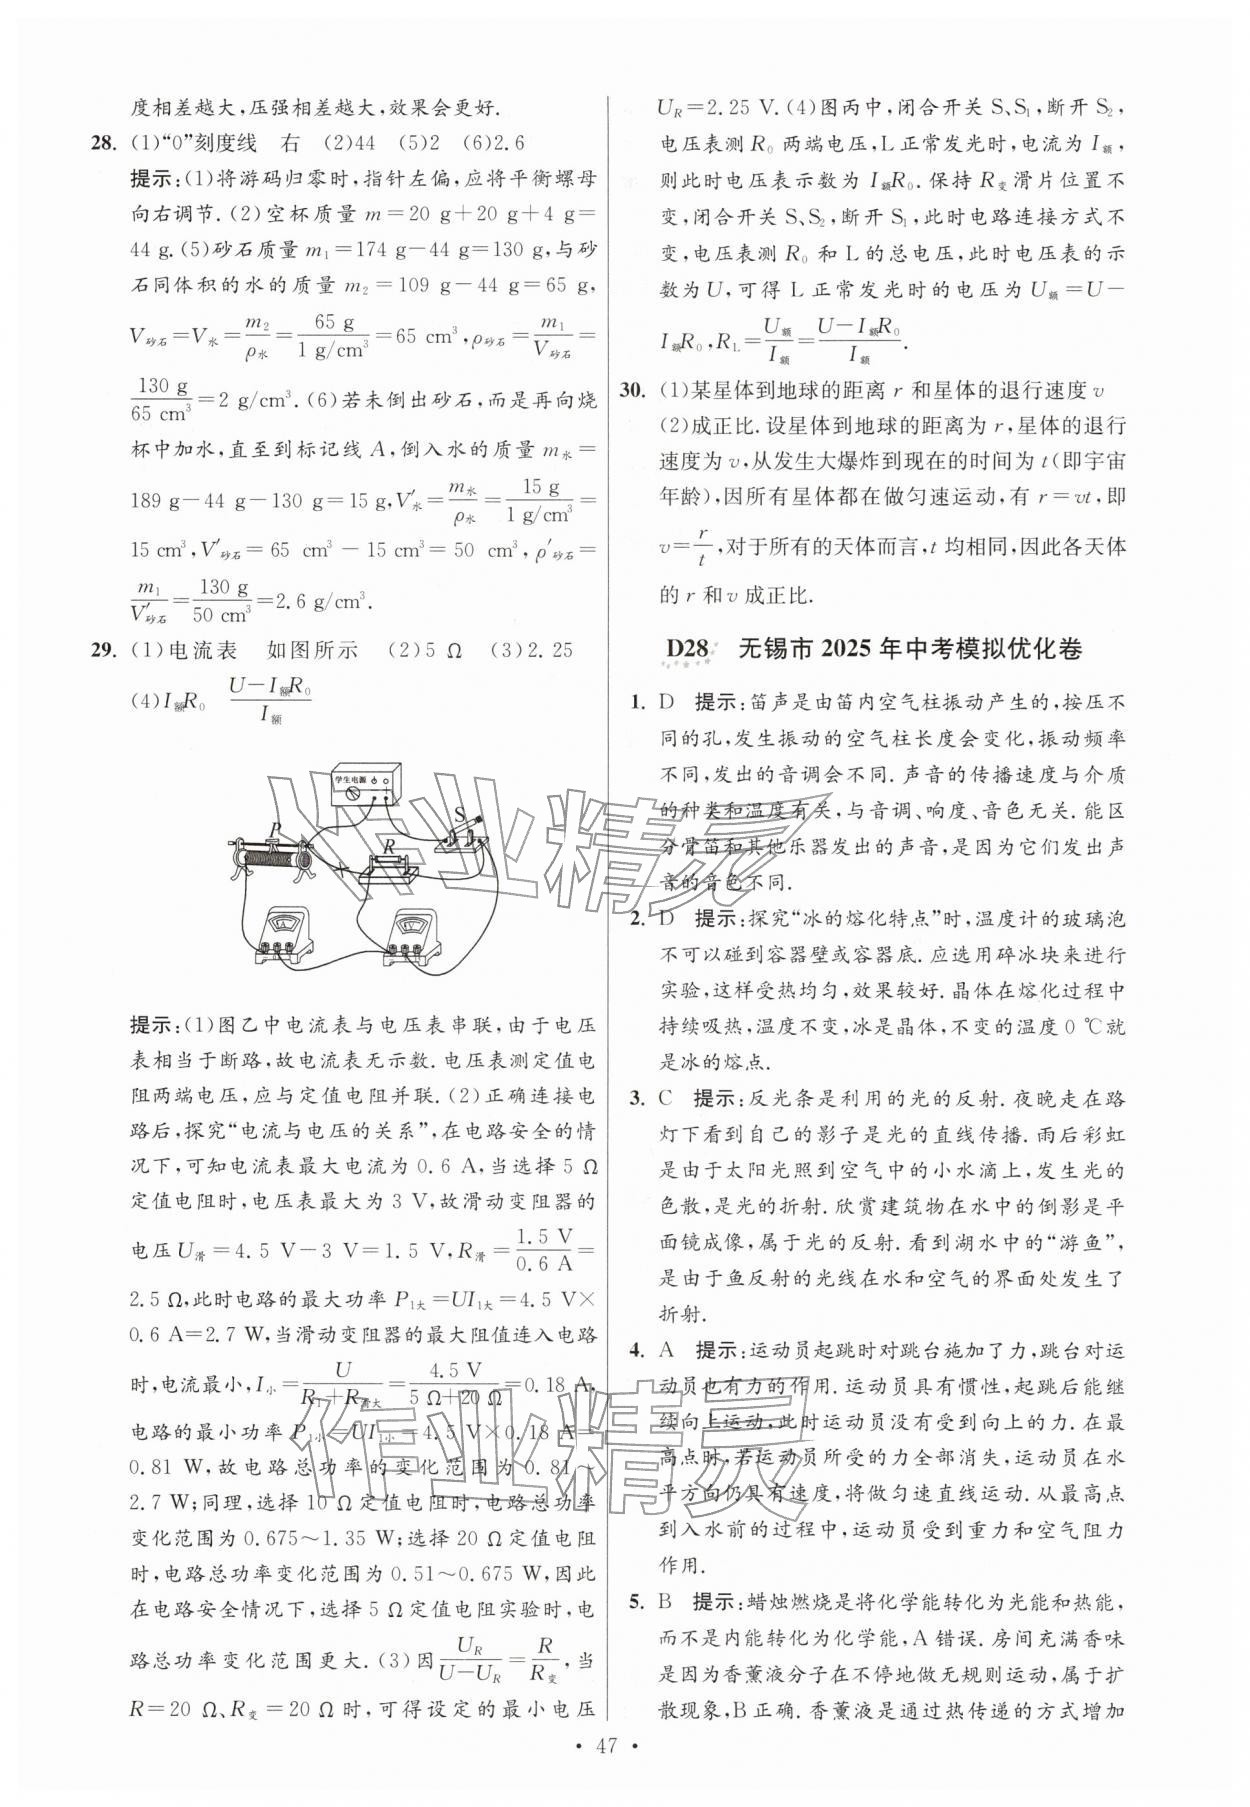 度相差越大,压强相差越大,效果会更好.
28. (1)“0”刻度线 右 (2)44 (5)2 (6)2.6
提示:(1)将游码归零时,指针左偏,应将平衡螺母
向右调节.(2)空杯质量 m=20 g+20 g+4 g=
44 g.(5)砂石质量 m₁=174 g-44 g=130 g,与砂
石同体积的水的质量 m₂=109 g-44 g=65 g,
V砂石=V水=m₂/ρ水=65 g/1 g/cm³=65 cm³,ρ砂石=m₁/V砂石=
130 g/65 cm³=2 g/cm³.(6)若未倒出砂石,而是再向烧
杯中加水,直至到标记线 A,倒入水的质量 m水=
189 g-44 g-130 g=15 g,V′水=m水/ρ水=15 g/1 g/cm³=
15 cm³,V′砂石=65 cm³-15 cm³=50 cm³,ρ′砂石=
m₁/V′砂石=130 g/50 cm³=2.6 g/cm³.
29. (1)电流表 如图所示 (2)5 Ω (3)2.25
(4)I额R₀ U-I额R₀/I额
学生电源
P
S
R
A
V
提示:(1)图乙中电流表与电压表串联,由于电压
表相当于断路,故电流表无示数.电压表测定值电
阻两端电压,应与定值电阻并联.(2)正确连接电
路后,探究“电流与电压的关系”,在电路安全的情
况下,可知电流表最大电流为 0.6 A,当选择 5 Ω
定值电阻时,电压表最大为 3 V,故滑动变阻器的
电压U滑=4.5 V-3 V=1.5 V,R滑=1.5 V/0.6 A=
2.5 Ω,此时电路的最大功率 P₁大=UI₁大=4.5 V×
0.6 A=2.7 W,当滑动变阻器的最大阻值连入电路
时,电流最小,I小=U/R₁+R滑大=4.5 V/5 Ω+20 Ω=0.18 A,
电路的最小功率 P₁小=UI₁小=4.5 V×0.18 A=
0.81 W,故电路总功率的变化范围为 0.81~
2.7 W;同理,选择 10 Ω定值电阻时,电路总功率
变化范围为 0.675~1.35 W;选择 20 Ω定值电阻
时,电路总功率变化范围为 0.51~0.675 W,因此
在电路安全情况下,选择 5 Ω定值电阻实验时,电
路总功率变化范围更大.(3)因U_R/U-U_R=R/R变,当
R=20 Ω、R变=20 Ω时,可得设定的最小电压
U_R=2.25 V.(4)图丙中,闭合开关 S、S₁,断开 S₂,
电压表测 R₀ 两端电压,L正常发光时,电流为 I额,
则此时电压表示数为 I额R₀.保持 R变滑片位置不
变,闭合开关 S、S₂,断开 S₁,此时电路连接方式不
变,电压表测 R₀ 和 L 的总电压,此时电压表的示
数为U,可得 L 正常发光时的电压为 U额=U-
I额R₀,R_L=U额/I额=U-I额R₀/I额.
30. (1)某星体到地球的距离 r 和星体的退行速度 v
(2)成正比.设星体到地球的距离为 r,星体的退行
速度为 v,从发生大爆炸到现在的时间为 t(即宇宙
年龄),因所有星体都在做匀速运动,有 r=vt,即
v=r/t,对于所有的天体而言,t 均相同,因此各天体
的 r 和 v 成正比.
D28 无锡市 2025 年中考模拟优化卷
1. D 提示:笛声是由笛内空气柱振动产生的,按压不
同的孔,发生振动的空气柱长度会变化,振动频率
不同,发出的音调会不同.声音的传播速度与介质
的种类和温度有关,与音调、响度、音色无关.能区
分骨笛和其他乐器发出的声音,是因为它们发出声
音的音色不同.
2. D 提示:探究“冰的熔化特点”时,温度计的玻璃泡
不可以碰到容器壁或容器底.应选用碎冰块来进行
实验,这样受热均匀,效果较好.晶体在熔化过程中
持续吸热,温度不变,冰是晶体,不变的温度 0 ℃就
是冰的熔点.
3. C 提示:反光条是利用的光的反射.夜晚走在路
灯下看到自己的影子是光的直线传播.雨后彩虹
是由于太阳光照到空气中的小水滴上,发生光的
色散,是光的折射.欣赏建筑物在水中的倒影是平
面镜成像,属于光的反射.看到湖水中的“游鱼”,
是由于鱼反射的光线在水和空气的界面处发生了
折射.
4. A 提示:运动员起跳时对跳台施加了力,跳台对运
动员也有力的作用.运动员具有惯性,起跳后能继
续向上运动,此时运动员没有受到向上的力.在最
高点时,若运动员所受的力全部消失,运动员在水
平方向仍具有速度,将做匀速直线运动.从最高点
到入水前的过程中,运动员受到重力和空气阻力
作用.
5. B 提示:蜡烛燃烧是将化学能转化为光能和热能,
而不是内能转化为化学能,A 错误.房间充满香味
是因为香薰液分子在不停地做无规则运动,属于扩
散现象,B正确.香薰液是通过热传递的方式增加
• 47 •
作业精灵
作业精灵